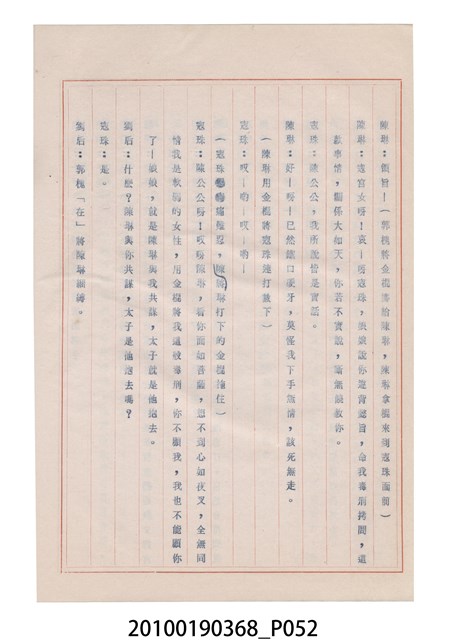 陳琳：領旨！(郭槐將金棍將給陳琳，陳琳拿棍來到寇珠面前)
陳琳：寇宮女呀！哀！呀寇珠，娘娘說你違背懿旨，命我毒刑拷問，這
款事情，關係大如天，你若不實說，漸無饒赦你。
寇珠：陳公公，我所說皆是實話。
陳琳：好！呀！已然鐵口硬牙，莫怪我下手無情，該死無走。
(陳琳用金棍將寇珠連打數下)
寇珠：哎！喲！哎！喲！
(寇珠痛忍，陳琳打下的金棍掩住)
寇珠：陳公公呀！哎呀陳琳，看你面如菩薩，想不到心如夜叉，全無同
情我是軟弱的女性，用金棍將我這般毒刑，你不顧我，我也不能顧你
了！娘娘，就是陳琳與我共謀，太子就是他抱去。
劉后：什麼？陳琳與你共謀，太子是他抱去嗎？
寇珠：是。
劉后：郭槐「在」將陳琳綑縛。
20100190368_P052